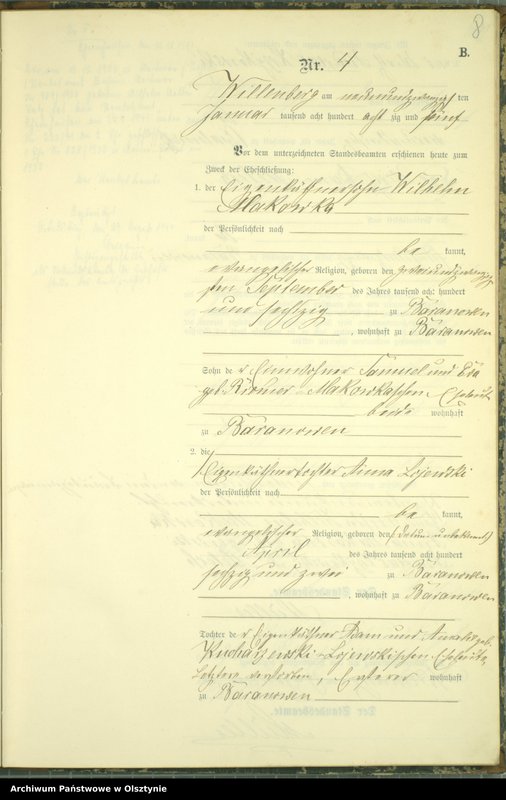 8
B.
Nr. 4
Willenberg am neunundzwanzigsten
Januar tausend acht hundert achtzig und fünf
Vor dem unterzeichneten Standesbeamten erschienen heute zum
Zweck der Eheschließung:
1. der Eigenkäthnersohn Wilhelm
Makowka
der Persönlichkeit nach
be kannt,
evangelischer Religion, geboren den zweiundzwanzig
sten September des Jahres tausend acht hundert
und sechszig zu Baranowen
, wohnhaft zu Baranowen
Sohn de r Einwohner Samuel und Eva
geb. Makowkaschen Eheleute
beide wohnhaft
zu Baranowen
2. die Eigenkäthnertochter Anna Lojewski
der Persönlichkeit nach
be kannt,
evangelischer Religion, geboren den (Datum unbekannt)
April des Jahres tausend acht hundert
sechzig und zwei zu Baranowen
, wohnhaft zu Baranowen
Tochter de r Eigenkäthner Adam und geb.
Lojewskischen Eheleute,
Letztere verstorben, Ersterer wohnhaft
zu Baranowen
Archiwum Państwowe w Olsztynie